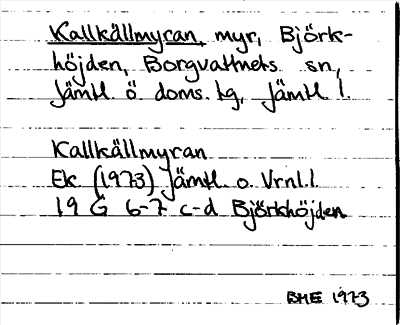 Kallkällmyran, myr, Björk-
höjden, Borgvattnets sn,
Jämtl. ö. doms. tg, Jämtl l.
Kallkällmyran
Ek (1973) Jämtl. o. Vrnl. l.
19 G 6-7 c-d Björkhöjden
BHE 1973